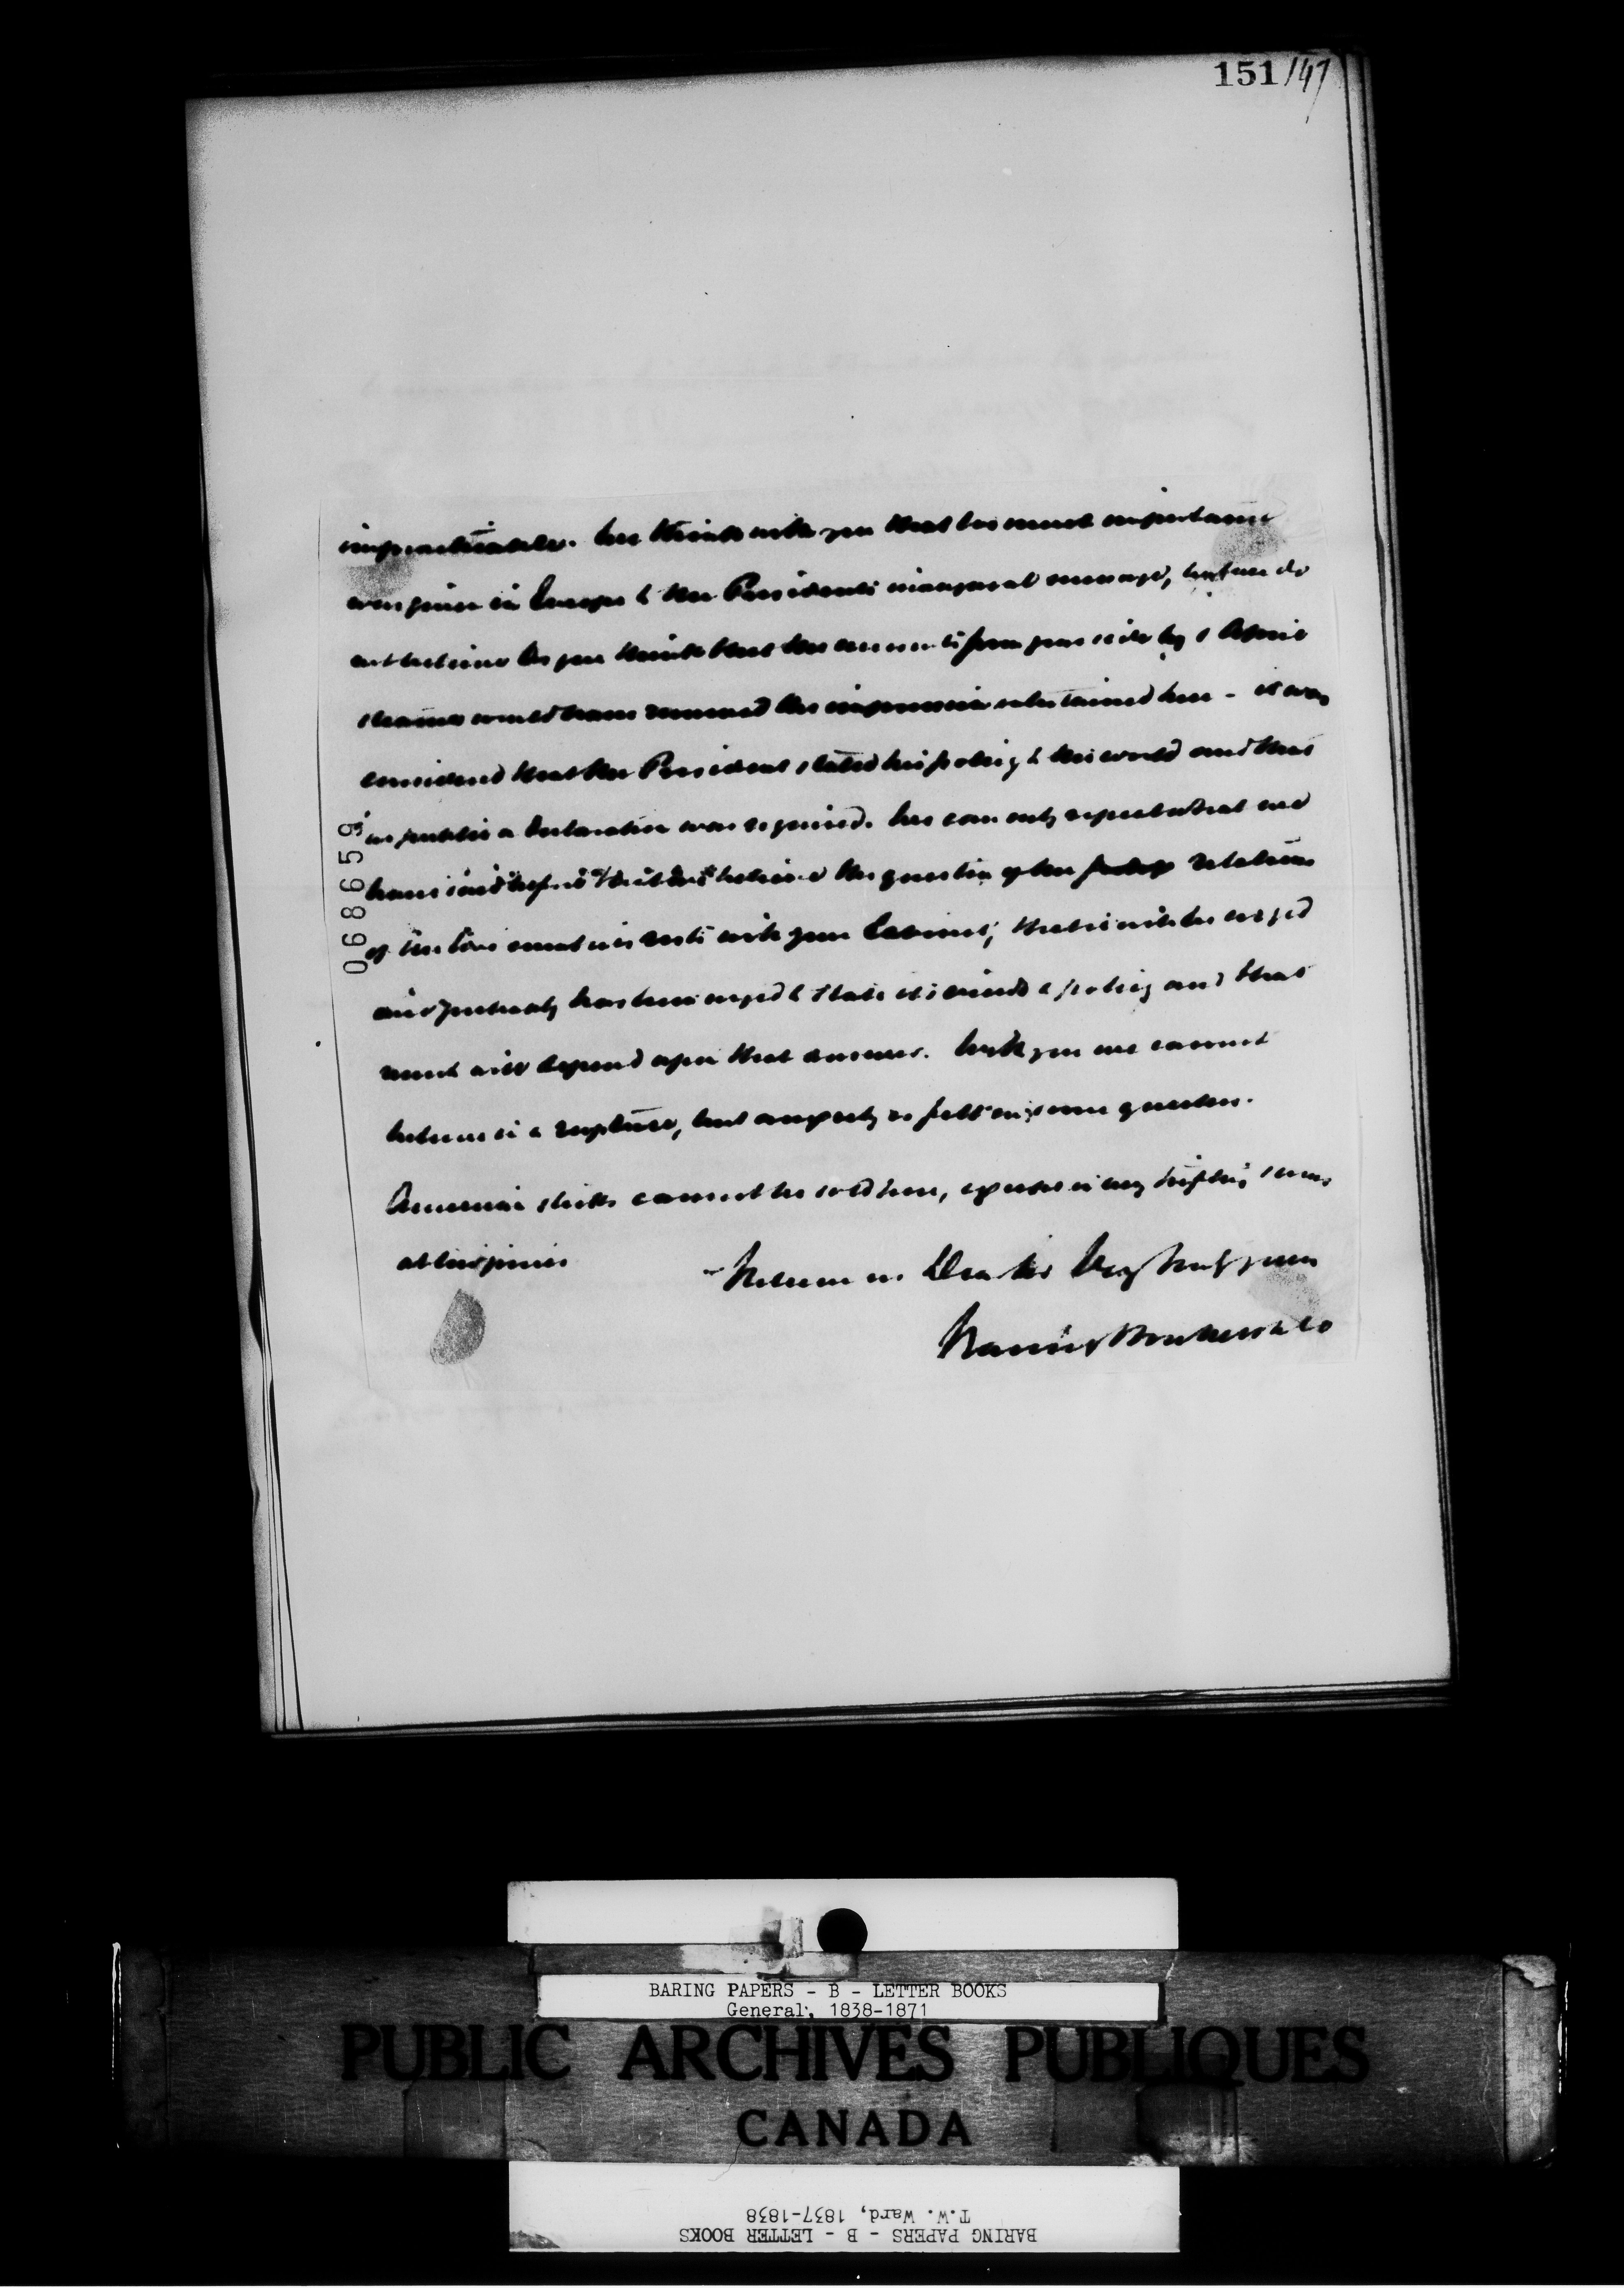 151/47
impracticable. We think with you that too much importance
was given in Europe to the President's inaugural message, but we do
not believe as you think that the accounts from your side by
steamer would have removed the impression entertained here - it was
considered that the President stated his policy to the world and that
as public a declaration was required. We can only repeat what we
have said before that we believe the question of the relations
of the two countries rests with your Cabinet, that it will be urged
and probably has been urged to state its views & policy and that
much will depend upon that answer. With you we cannot
believe in a rupture, but anxiety is felt in some quarters.
American stocks cannot be sold here, except in very trifling sums
at low prices
Believe us Dear Sir Very truly yours
Baring Brothers & Co
068659
BARING PAPERS - B - LETTER BOOKS
General, 1838-1871
PUBLIC ARCHIVES PUBLIQUES
CANADA
T.W. Ward, 1837-1838
BARING PAPERS - B - LETTER BOOKS